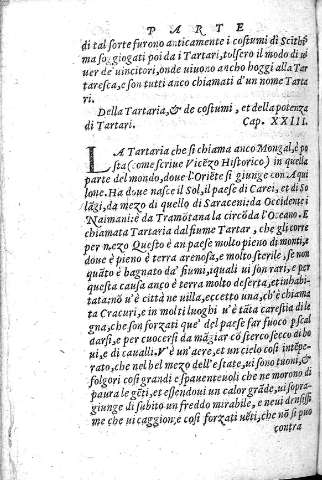 PARTE
di tal sorte furono anticamente i costumi di Scithi,
ma soggiogati poi da i Tartari, tolsero il modo di ui
uer de' uincitori, onde uiuono ancho hoggi alla Tar
taresca, e son tutti anco chiamati d'un nome Tarta
ri.
Della Tartaria, & de costumi, et della potenza
di Tartari. Cap. XXIII.
LA Tartaria che si chiama anco Mongal, è po
sta (come scriue Vicēzo Historico) in quella
parte del mondo, doue l'Oriēte si giunge con Aqui
lone. Ha doue nasce il Sol, il paese di Carei, et di So
lāgi, da mezo dì quello di Saraceni: da Occidente i
Naimani: e da Tramōtana la circōda l'Oceano. E
chiamata Tartaria dal fiume Tartar, che gli corre
per mezo Questo è an paese molto pieno di monti, e
doue è pieno è terra arenosa, e molto sterile, se non
quāto è bagnato da' fiumi, iquali ui son rari, e per
questa causa anco è terra molto deserta, et inhabi-
tata: nō u'è città ne uilla, eccetto una, ch'è chiama
ta Cracuri, e in molti luoghi u'è tāta carestia di le
gna, che son forzati que' del paese far fuoco p scal
darsi, e per cuocersi da māgiar cō sterco secco di bo
ui, e di caualli. V'è un'aere, et un cielo così intēpe-
rato, che nel bel mezo dell'estate, ui sono tuoni, &
folgori così grandi e spauenteuoli che ne morono di
paura le gēti, et essendoui un calor grāde, ui sopra-
giunge di subito un freddo mirabile, e neui densissi
me che ui caggion: e così forzati uēti, che nō si può
contra